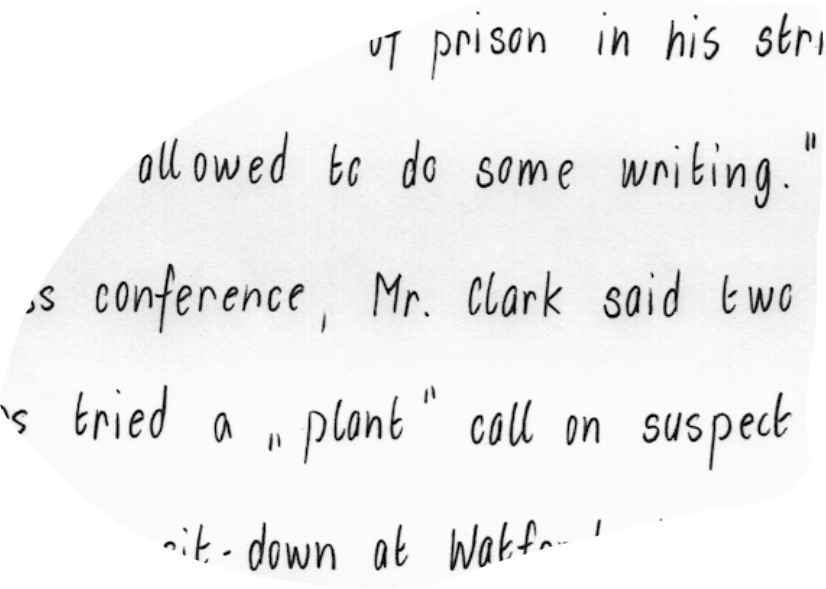 prison in his
allowed to do some writing."
conference, Mr. Clark said two
tried a „plant" call on suspect
sit-down at